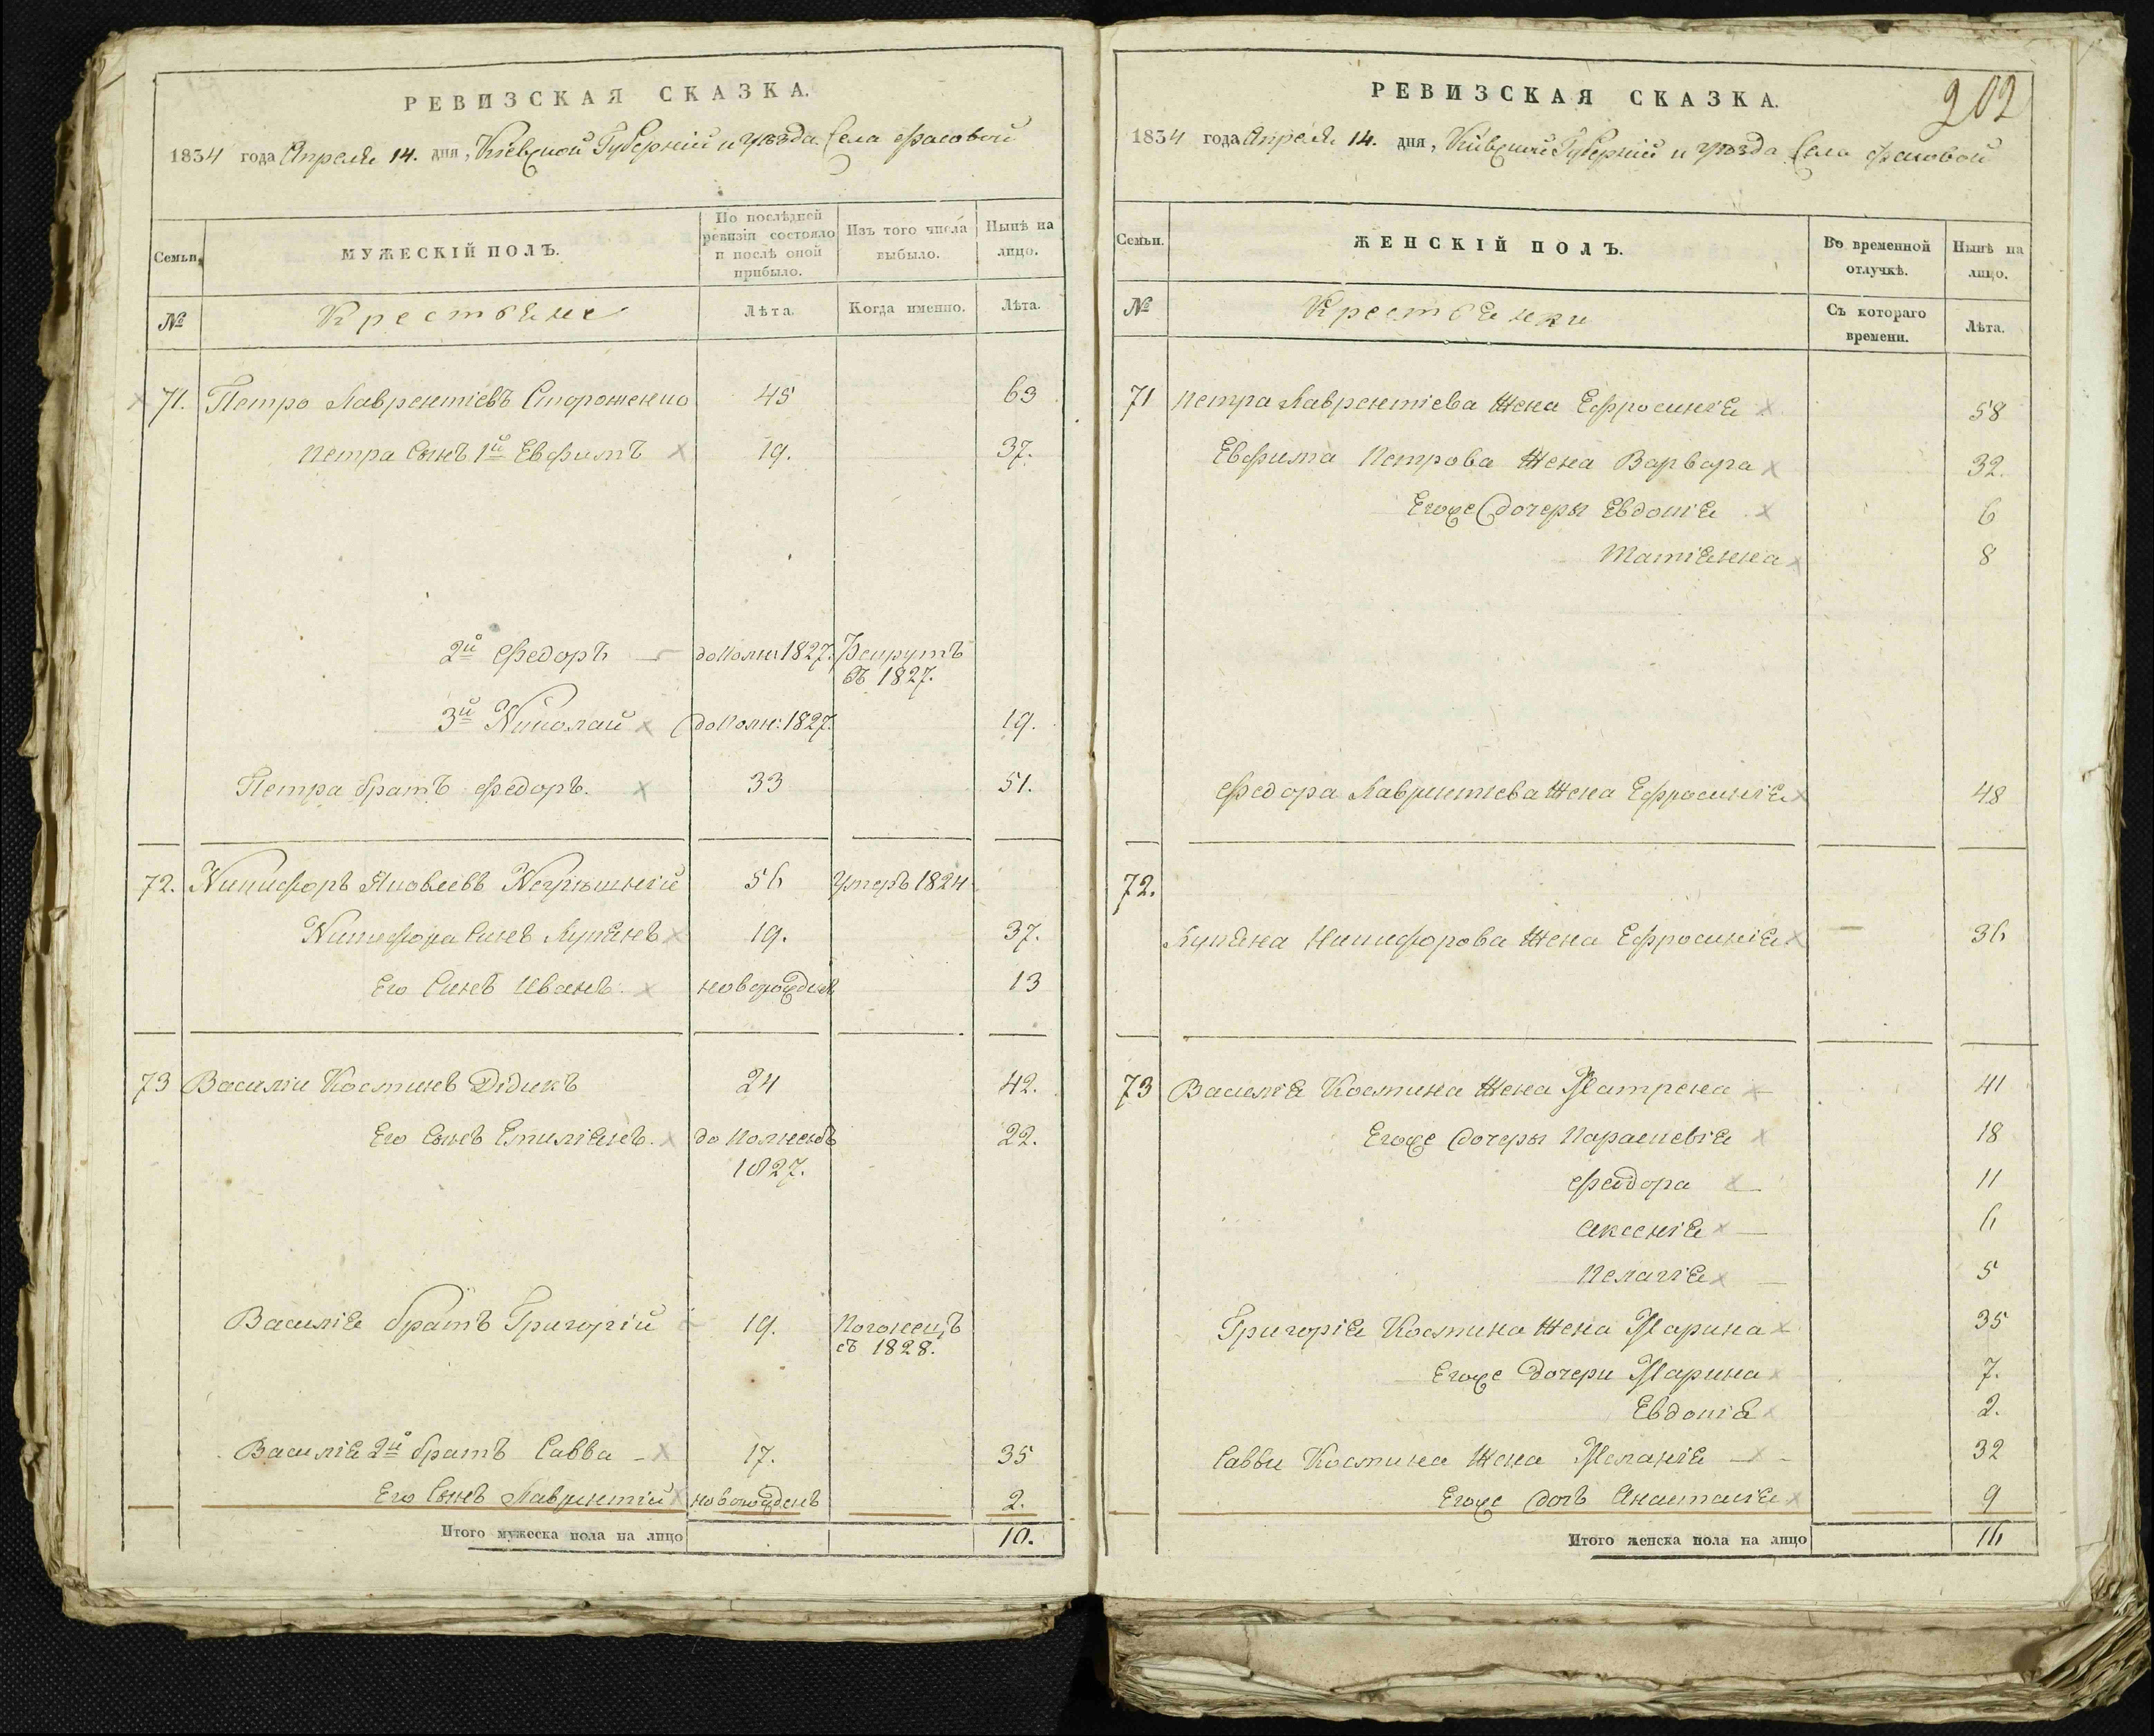 РЕВИЗСКАЯ СКАЗКА.
1834 года Апреля 14. дня, Кіевской Губерніи и уѣзда Села Фасовой
Семьи.
МУЖЕСКІЙ ПОЛЪ.
По послѣдней ревизіи состояло и послѣ оной прибыло.
Изъ того числа выбыло.
Нынѣ на лицо.
№
Крестьяне
Лѣта.
Когда именно.
Лѣта.
71. Петро Лаврентіевъ Стороженко 45 63
Петра Сынъ 1й Евфимъ 19. 37.
2й Федоръ до Полн 1827. Рекрутъ
въ 1827.
3й Николай до Полн: 1827. 19.
Петра братъ Федоръ. 33 51.
72. Никифоръ Яковлевъ 56 Умеръ 1824
Никифора Синъ Лукіянъ 19. 37.
Его Синъ Иванъ. новорожденъ 13
73 Василіи Костинъ Дідикъ 24 42.
Его Сынъ Емиліянъ. до Полненъ 22.
1827.
Василія братъ Григорій 19.
съ 1828.
Василія 2й братъ Савва 17. 35
Его Сынъ Лаврентій новорожденъ 2.
Итого мужеска пола на лицо 10.
202
РЕВИЗСКАЯ СКАЗКА.
1834 года Апреля 14. дня, Кіевской Губерніи и уѣзда Села Фасовой
Семьи.
ЖЕНСКІЙ ПОЛЪ.
Во временной отлучкѣ.
Нынѣ на лицо.
№
Крестьянки
Съ котораго времени.
Лѣта.
71 Петра Лаврентіева Жена Ефросинія 58
Евфима Петрова Жена Варвара 32.
Егоже дочеры Евдокія 6
Татіянна 8
Федора Лаврентіева Жена Ефросинія 48
72.
Лукіяна Никифорова Жена Ефросинія 36
73 Василія Костина Жена Матрена 41
Егоже дочеры Параскевія 18
Феодора 11
Аксенія 6
Пелагія 5
Григорія Костина Жена Марина 35
Егоже Дочери Марина 7.
Евдокія 2.
Саввы Костина Жена Меланія 32
Егоже дочь Анастасія 9
Итого женска пола на лицо 16